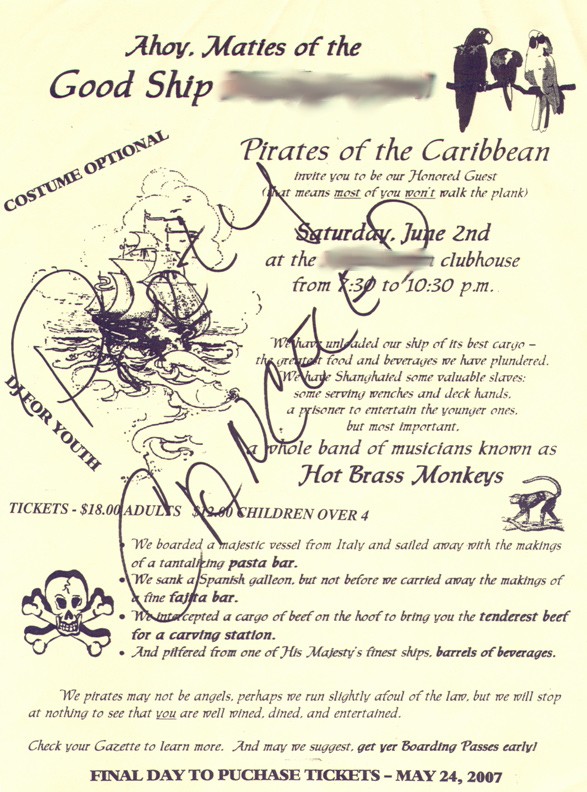 Ahoy, Maties of the
Good Ship
Pirates of the Caribbean
invite you to be our Honored Guest
(that means most of you won't walk the plank)
COSTUME OPTIONAL
Saturday, June 2nd
at the clubhouse
from 7:30 to 10:30 p.m.
We have unloaded our ship of its best cargo –
the greatest food and beverages we have plundered.
We have Shanghaied some valuable slaves:
some serving wenches and deck hands,
a prisoner to entertain the younger ones,
but most important,
a whole band of musicians known as
Hot Brass Monkeys
DJ FOR YOUTH
Party
TICKETS - $18.00 ADULTS $12.00 CHILDREN OVER 4
• We boarded a majestic vessel from Italy and sailed away with the makings
of a tantalizing pasta bar.
• We sank a Spanish galleon, but not before we carried away the makings of
a fine fajita bar.
• We intercepted a cargo of beef on the hoof to bring you the tenderest beef
for a carving station.
• And pilfered from one of His Majesty's finest ships, barrels of beverages.
We pirates may not be angels, perhaps we run slightly afoul of the law, but we will stop
at nothing to see that you are well wined, dined, and entertained.
Check your Gazette to learn more. And may we suggest, get yer Boarding Passes early!
FINAL DAY TO PUCHASE TICKETS – MAY 24, 2007